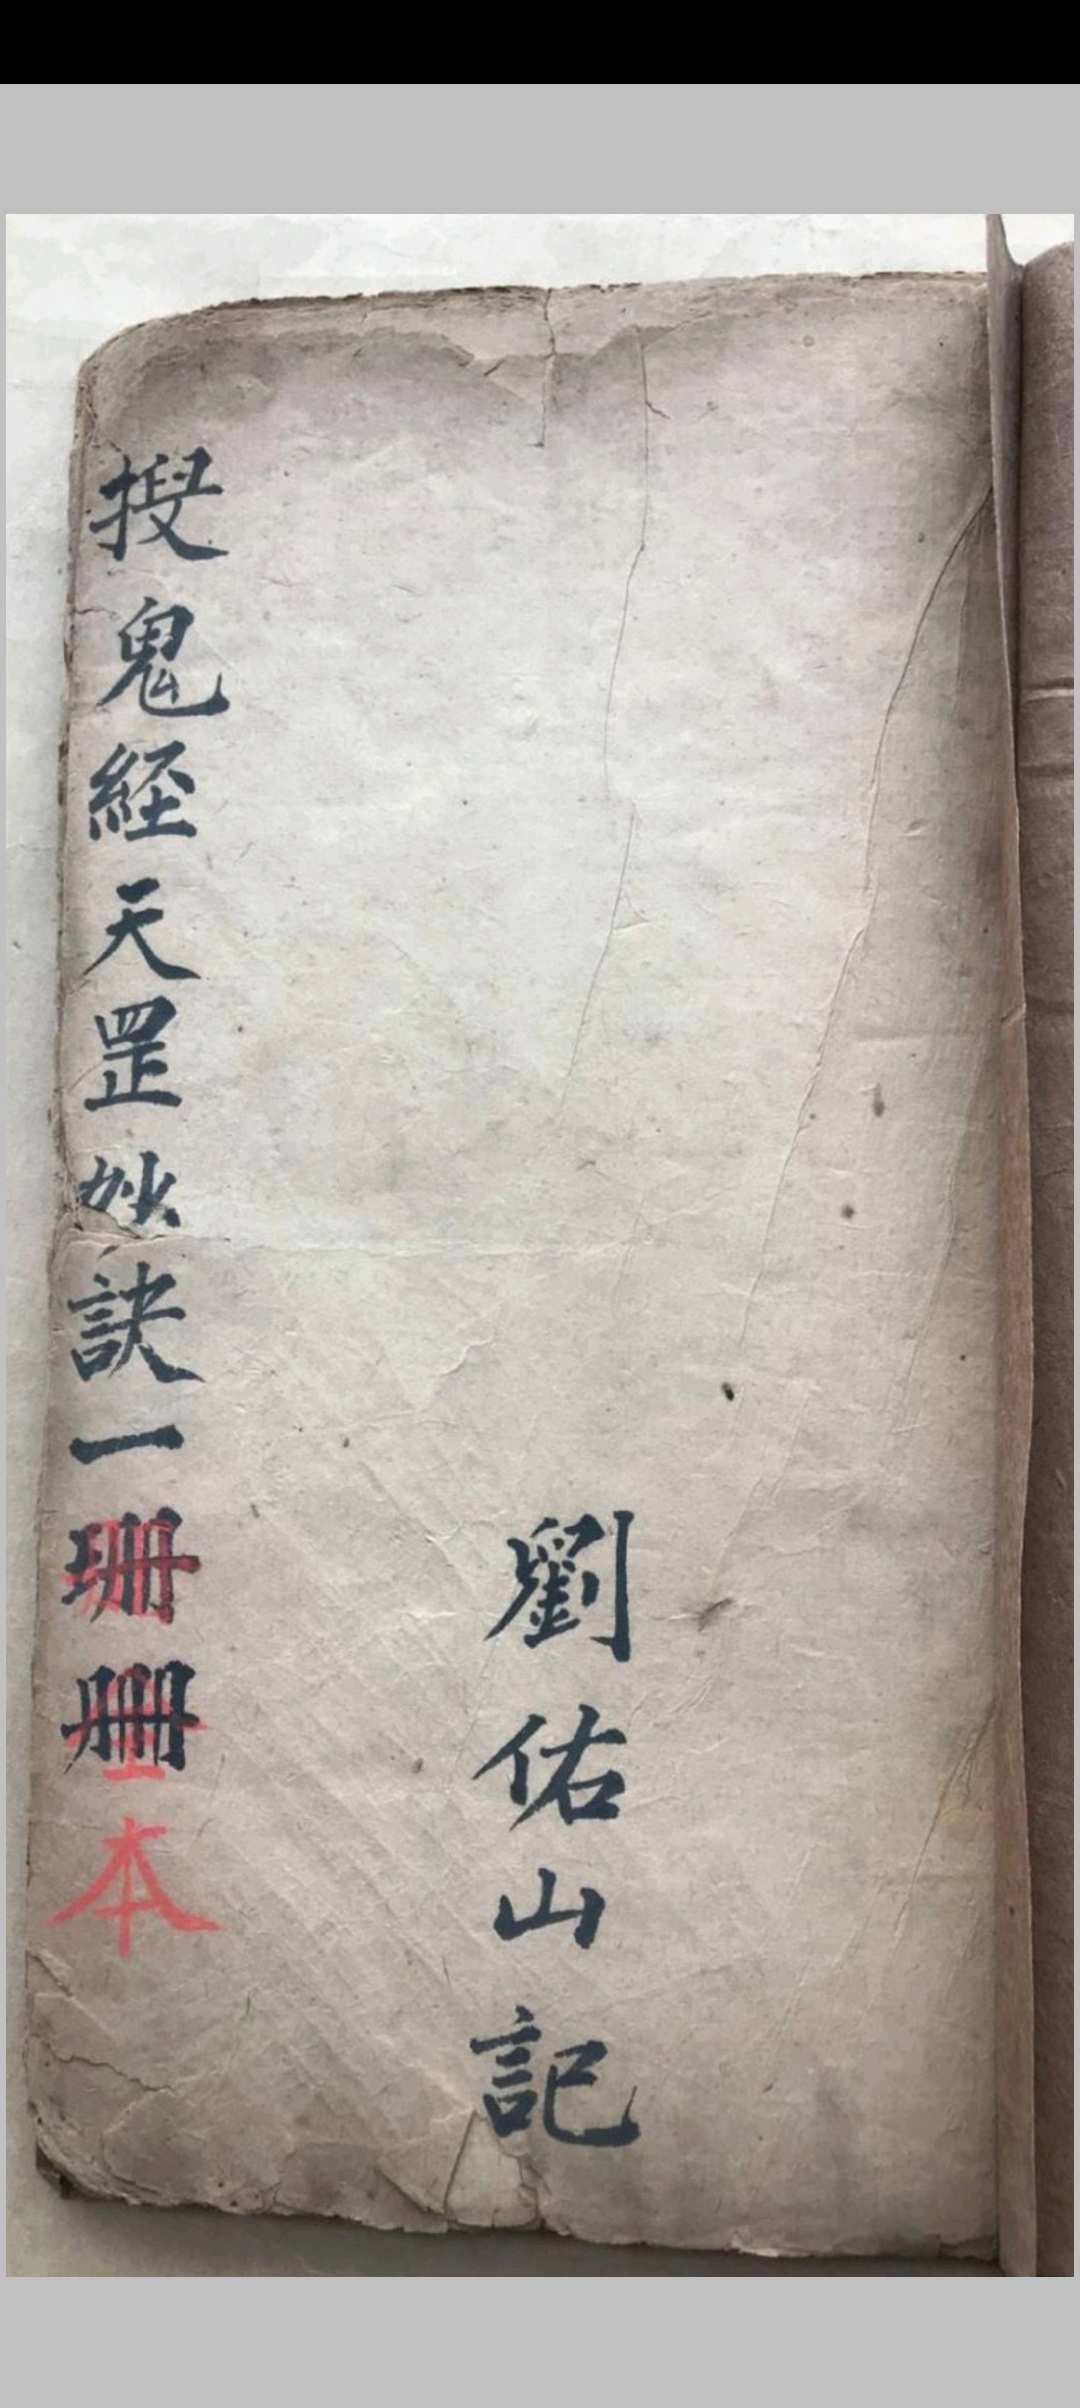 劉佑山記
搜鬼経天罡妙訣一珊冊本